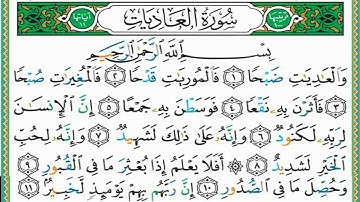 سُورَةُ العَادِيَاتِ
بِسْمِ اللَّهِ الرَّحْمَنِ الرَّحِيمِ
وَالْعَٰدِيَٰتِ ضَبْحًا ١ فَالْمُورِيَٰتِ قَدْحًا ٢ فَالْمُغِيرَٰتِ صُبْحًا
٣ فَأَثَرْنَ بِهِۦ نَقْعًا ٤ فَوَسَطْنَ بِهِۦ جَمْعًا ٥ إِنَّ الْإِنسَٰنَ
لِرَبِّهِۦ لَكَنُودٌ ٦ وَإِنَّهُۥ عَلَىٰ ذَٰلِكَ لَشَهِيدٌ ٧ وَإِنَّهُۥ لِحُبِّ
الْخَيْرِ لَشَدِيدٌ ٨ أَفَلَا يَعْلَمُ إِذَا بُعْثِرَ مَا فِى الْقُبُورِ ٩
وَحُصِّلَ مَا فِى الصُّدُورِ ١٠ إِنَّ رَبَّهُم بِهِمْ يَوْمَئِذٍ لَّخَبِيرٌۢ ١١